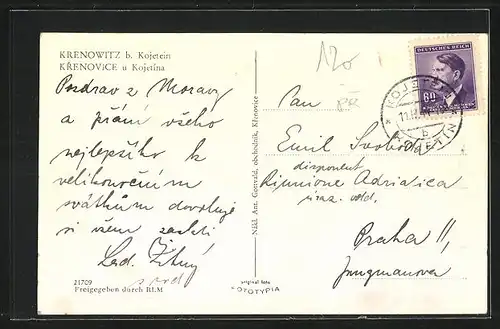 KRENOWITZ b. Kojetein
KŘENOVICE u Kojetína
Pozdrav z Moravy
a přání všeho
nejlepšího k
velikonočním
svátkům dovoluje
si všem zaslati
Lad. Žitný
s rod.
21709
Freigegeben durch RLM
Nákl. Ant. Gottvald, obchodník, Křenovice
original foto
FOTOTYPIA
120
PŘ
DEUTSCHES REICH
60
KOJETEIN
KOJETÍN
b
Pan
Emil Svoboda
disponent
Riunione Adriatica
Praha II,
Jungmanova